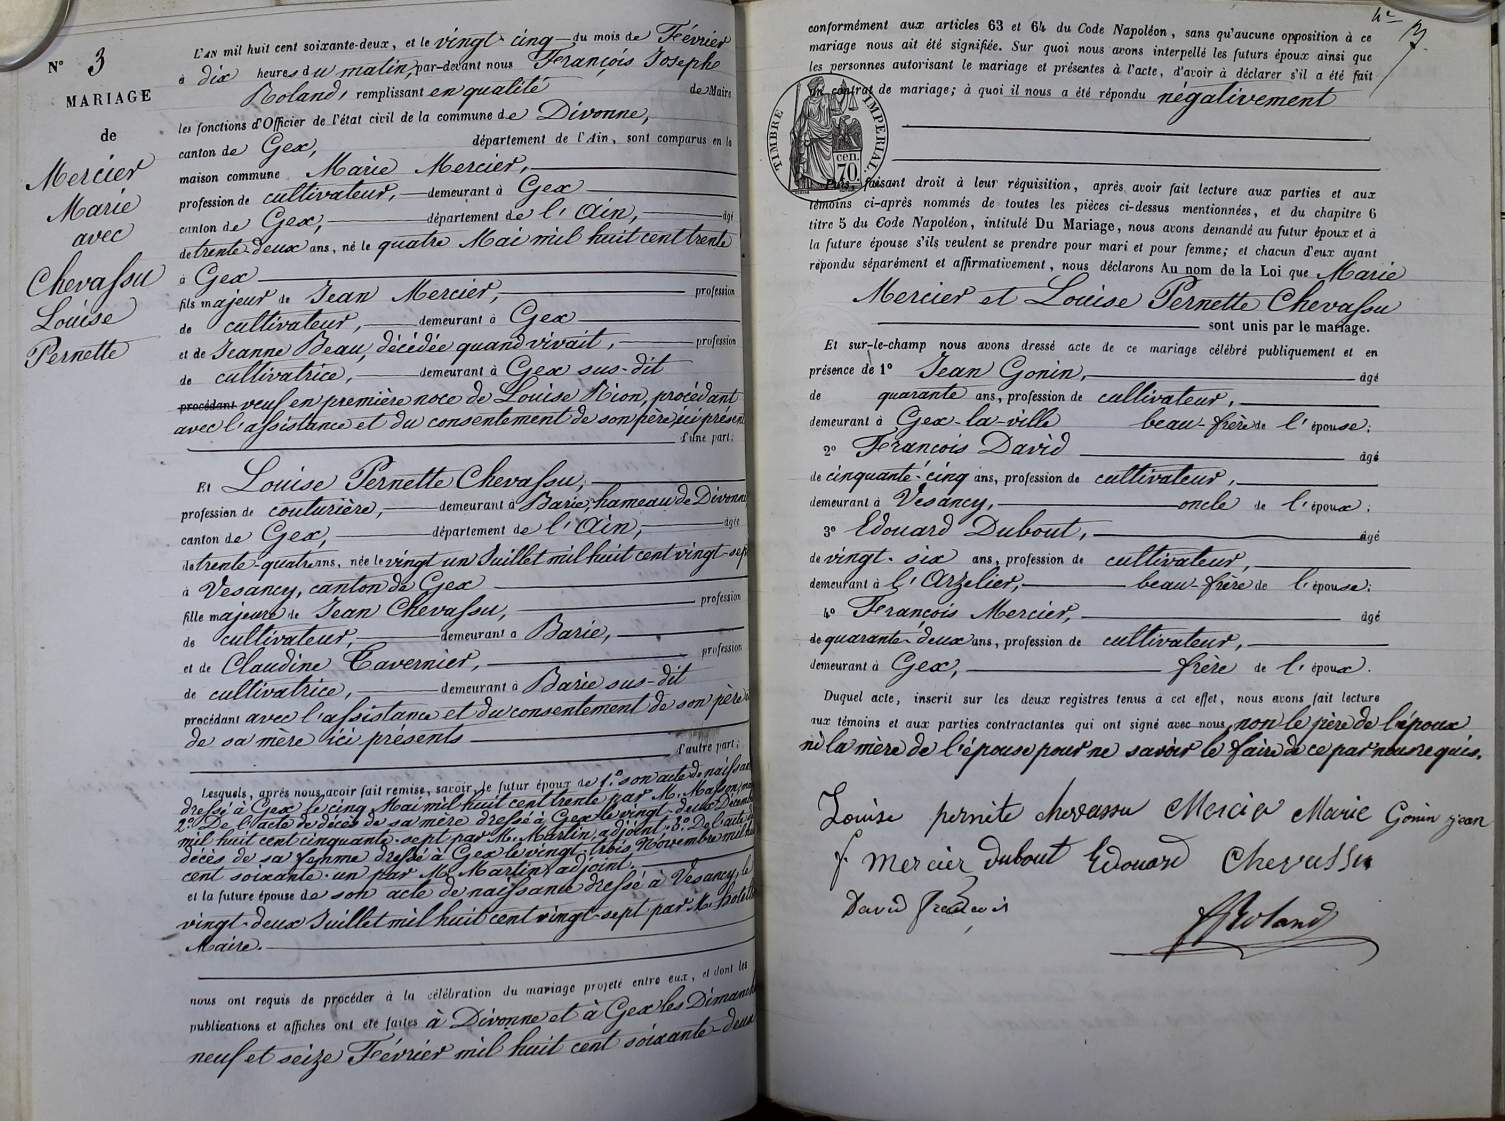 N° 3
MARIAGE
de
Mercier
Marie
avec
Chevassu
Louise
Pernette
L'AN mil huit cent soixante-deux, et le vingt-cinq du mois de Février
à dix heures du matin, par-devant nous François Joseph
Roland, remplissant en qualité de Maire
les fonctions d'Officier de l'état civil de la commune de Divonne,
canton de Gex, département de l'Ain, sont comparus en la
maison commune Marie Mercier,
profession de cultivateur, demeurant à Gex
canton de Gex, département de l'Ain, âgé
de trente-deux ans, né le quatre Mai mil huit cent trente
à Gex
fils majeur de Jean Mercier, profession
de cultivateur, demeurant à Gex
et de Jeanne Beau, décédée quand vivait, profession
de cultivatrice, demeurant à Gex sus-dit
procédant veuf en première noce de Louise Rion, procédant
avec l'assistance et du consentement de son père ici présent
d'une part;
Et Louise Pernette Chevassu,
profession de couturière, demeurant à Barie, hameau de Divonne
canton de Gex, département de l'Ain, âgée
de trente-quatre ans, née le vingt un Juillet mil huit cent vingt-sept
à Vesancy, canton de Gex
fille majeure de Jean Chevassu, profession
de cultivateur, demeurant à Barie,
et de Claudine Tavernier, profession
de cultivatrice, demeurant à Barie sus-dit
procédant avec l'assistance et du consentement de son père
de sa mère ici présents
d'autre part;
Lesquels, après nous avoir fait remise, savoir, le futur époux de 1° son acte de naissance
dressé à Gex le cinq Mai mil huit cent trente par M. Masson,
2° De l'acte de décès de sa mère dressé à Gex le vingt-deux Décembre
mil huit cent cinquante-sept par M. Martin, adjoint. 3° De l'acte de
décès de sa femme dressé à Gex le vingt-trois Novembre mil huit
cent soixante-un par M. Martin, adjoint.
et la future épouse de son acte de naissance dressé à Vesancy, le
vingt-deux Juillet mil huit cent vingt-sept par M.
Maire.
nous ont requis de procéder à la célébration du mariage projeté entre eux, et dont les
publications et affiches ont été faites à Divonne et à Gex les Dimanches
neuf et seize Février mil huit cent soixante-deux
conformément aux articles 63 et 64 du Code Napoléon, sans qu'aucune opposition à ce
mariage nous ait été signifiée. Sur quoi nous avons interpellé les futurs époux ainsi que
les personnes autorisant le mariage et présentes à l'acte, d'avoir à déclarer s'il a été fait
un contrat de mariage; à quoi il nous a été répondu négativement
TIMBRE IMPERIAL.
70 cen.
Puis, faisant droit à leur réquisition, après avoir fait lecture aux parties et aux
témoins ci-après nommés de toutes les pièces ci-dessus mentionnées, et du chapitre 6
titre 5 du Code Napoléon, intitulé Du Mariage, nous avons demandé au futur époux et à
la future épouse s'ils veulent se prendre pour mari et pour femme; et chacun d'eux ayant
répondu séparément et affirmativement, nous déclarons Au nom de la Loi que Marie
Mercier et Louise Pernette Chevassu
sont unis par le mariage.
Et sur-le-champ nous avons dressé acte de ce mariage célébré publiquement et en
présence de 1° Jean Gonin, âgé
de quarante ans, profession de cultivateur,
demeurant à Gex-la-ville beau-frère de l'épouse;
2° François David âgé
de cinquante-cinq ans, profession de cultivateur,
demeurant à Vesancy, oncle de l'époux;
3° Edouard Dubout, âgé
de vingt-six ans, profession de cultivateur,
demeurant à l'Arzelier, beau-frère de l'épouse;
4° François Mercier, âgé
de quarante-deux ans, profession de cultivateur,
demeurant à Gex, frère de l'époux.
Duquel acte, inscrit sur les deux registres tenus à cet effet, nous avons fait lecture
aux témoins et aux parties contractantes qui ont signé avec nous, non le père de l'époux
ni la mère de l'épouse pour ne savoir le faire de ce par nous requis.
Louise pernite chevassu Mercier Marie Gonin jean
f. mercier Dubout Edouard Chevassu
David francois
Roland